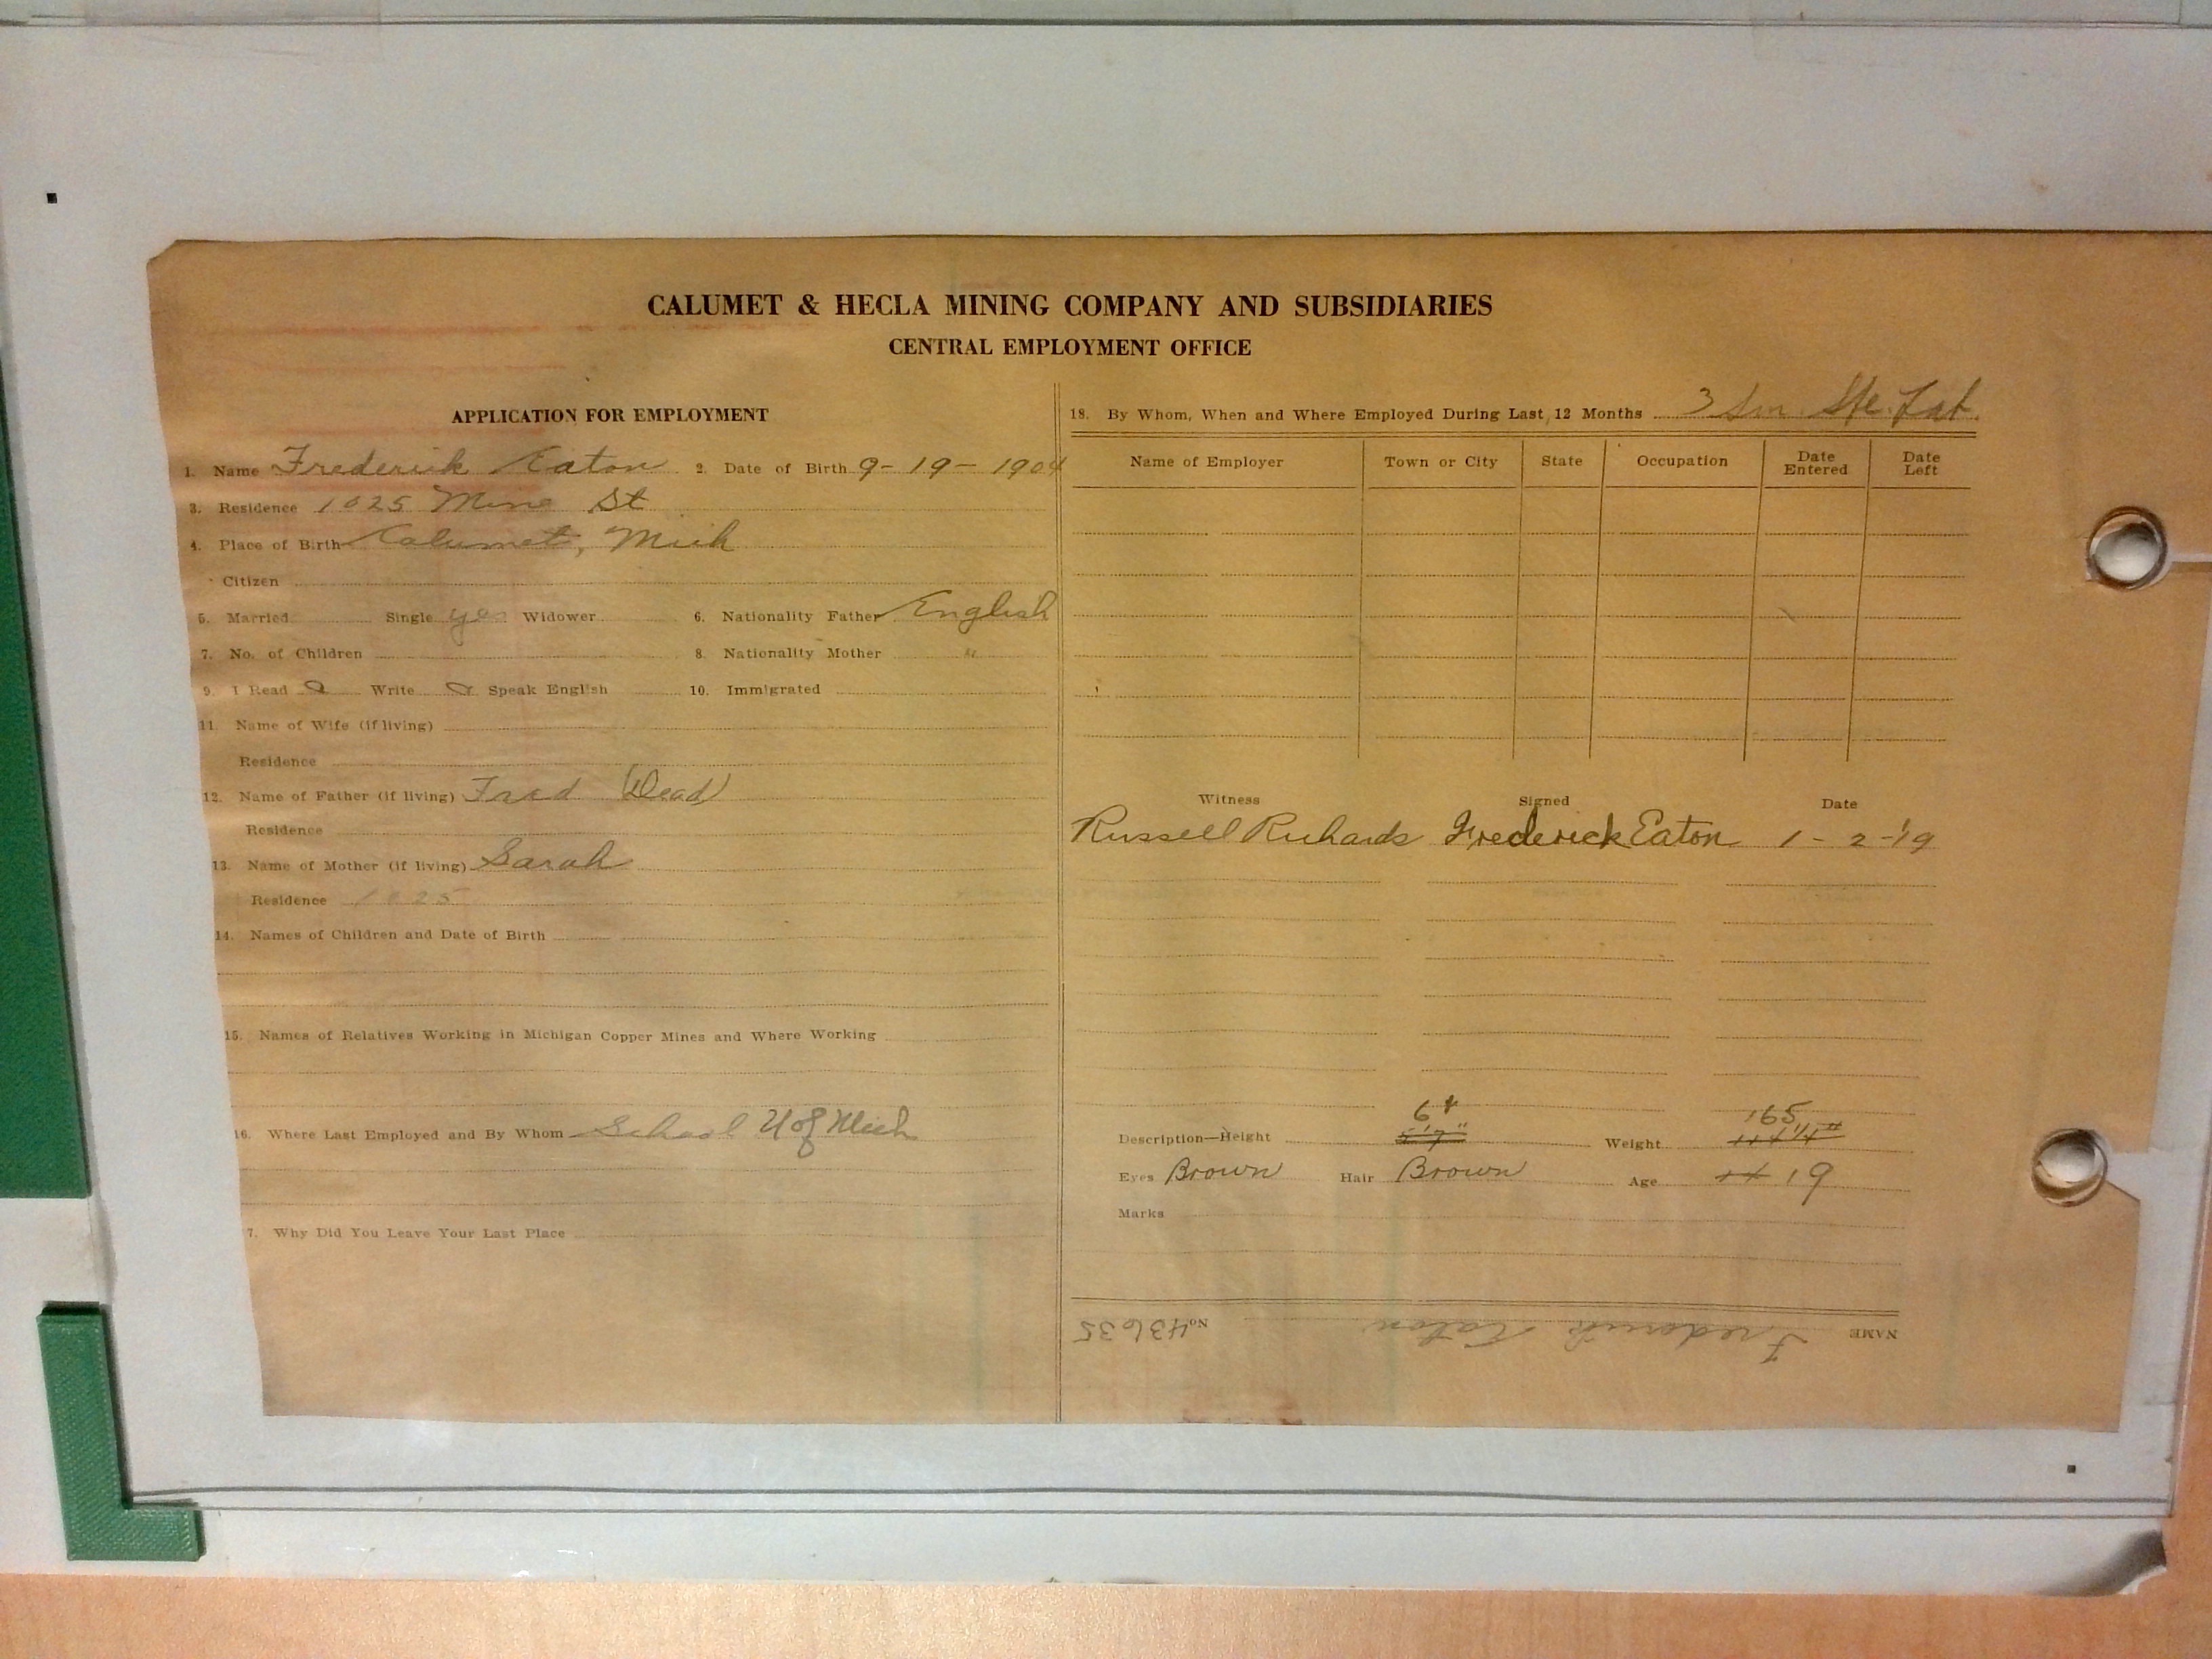 CALUMET & HECLA MINING COMPANY AND SUBSIDIARIES
CENTRAL EMPLOYMENT OFFICE
APPLICATION FOR EMPLOYMENT
1. Name Frederick Eaton 2. Date of Birth 9-19-1904
3. Residence 1025 Mine St
4. Place of Birth Calumet, Mich
Citizen
5. Married Single yes Widower 6. Nationality Father English
7. No. of Children 8. Nationality Mother "
9. I Read Write Speak English 10. Immigrated
11. Name of Wife (if living)
Residence
12. Name of Father (if living) Fred (Dead)
Residence
13. Name of Mother (if living) Sarah
Residence 1025
14. Names of Children and Date of Birth
15. Names of Relatives Working in Michigan Copper Mines and Where Working
16. Where Last Employed and By Whom School U of Mich
7. Why Did You Leave Your Last Place
18. By Whom, When and Where Employed During Last 12 Months 3
Name of Employer Town or City State Occupation Date Entered Date Left
Witness Signed Date
Russell Richards Frederick Eaton 1-2-19
6' 165
Description—Height 5'7" Weight
Eyes Brown Hair Brown Age 14 19
Marks
NAME Frederick Eaton No. 43635